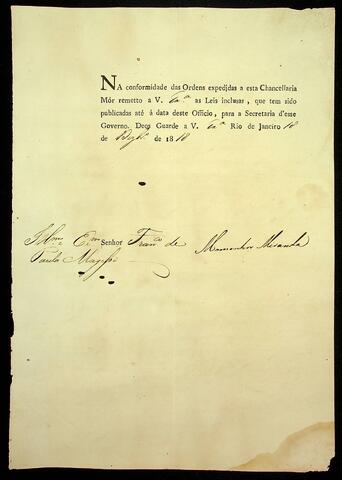 NA conformidade das Ordens expedidas a esta Chancellaria
Mór remetto a V. Exª as Leis inclusas, que tem sido
publicadas até á data deste Officio, para a Secretaria d'esse
Governo. Deos Guarde a V. Exª Rio de Janeiro 10
de de 1818
Illmo. e Exmo. Senhor Franco. de Monsenhor Miranda
Paula